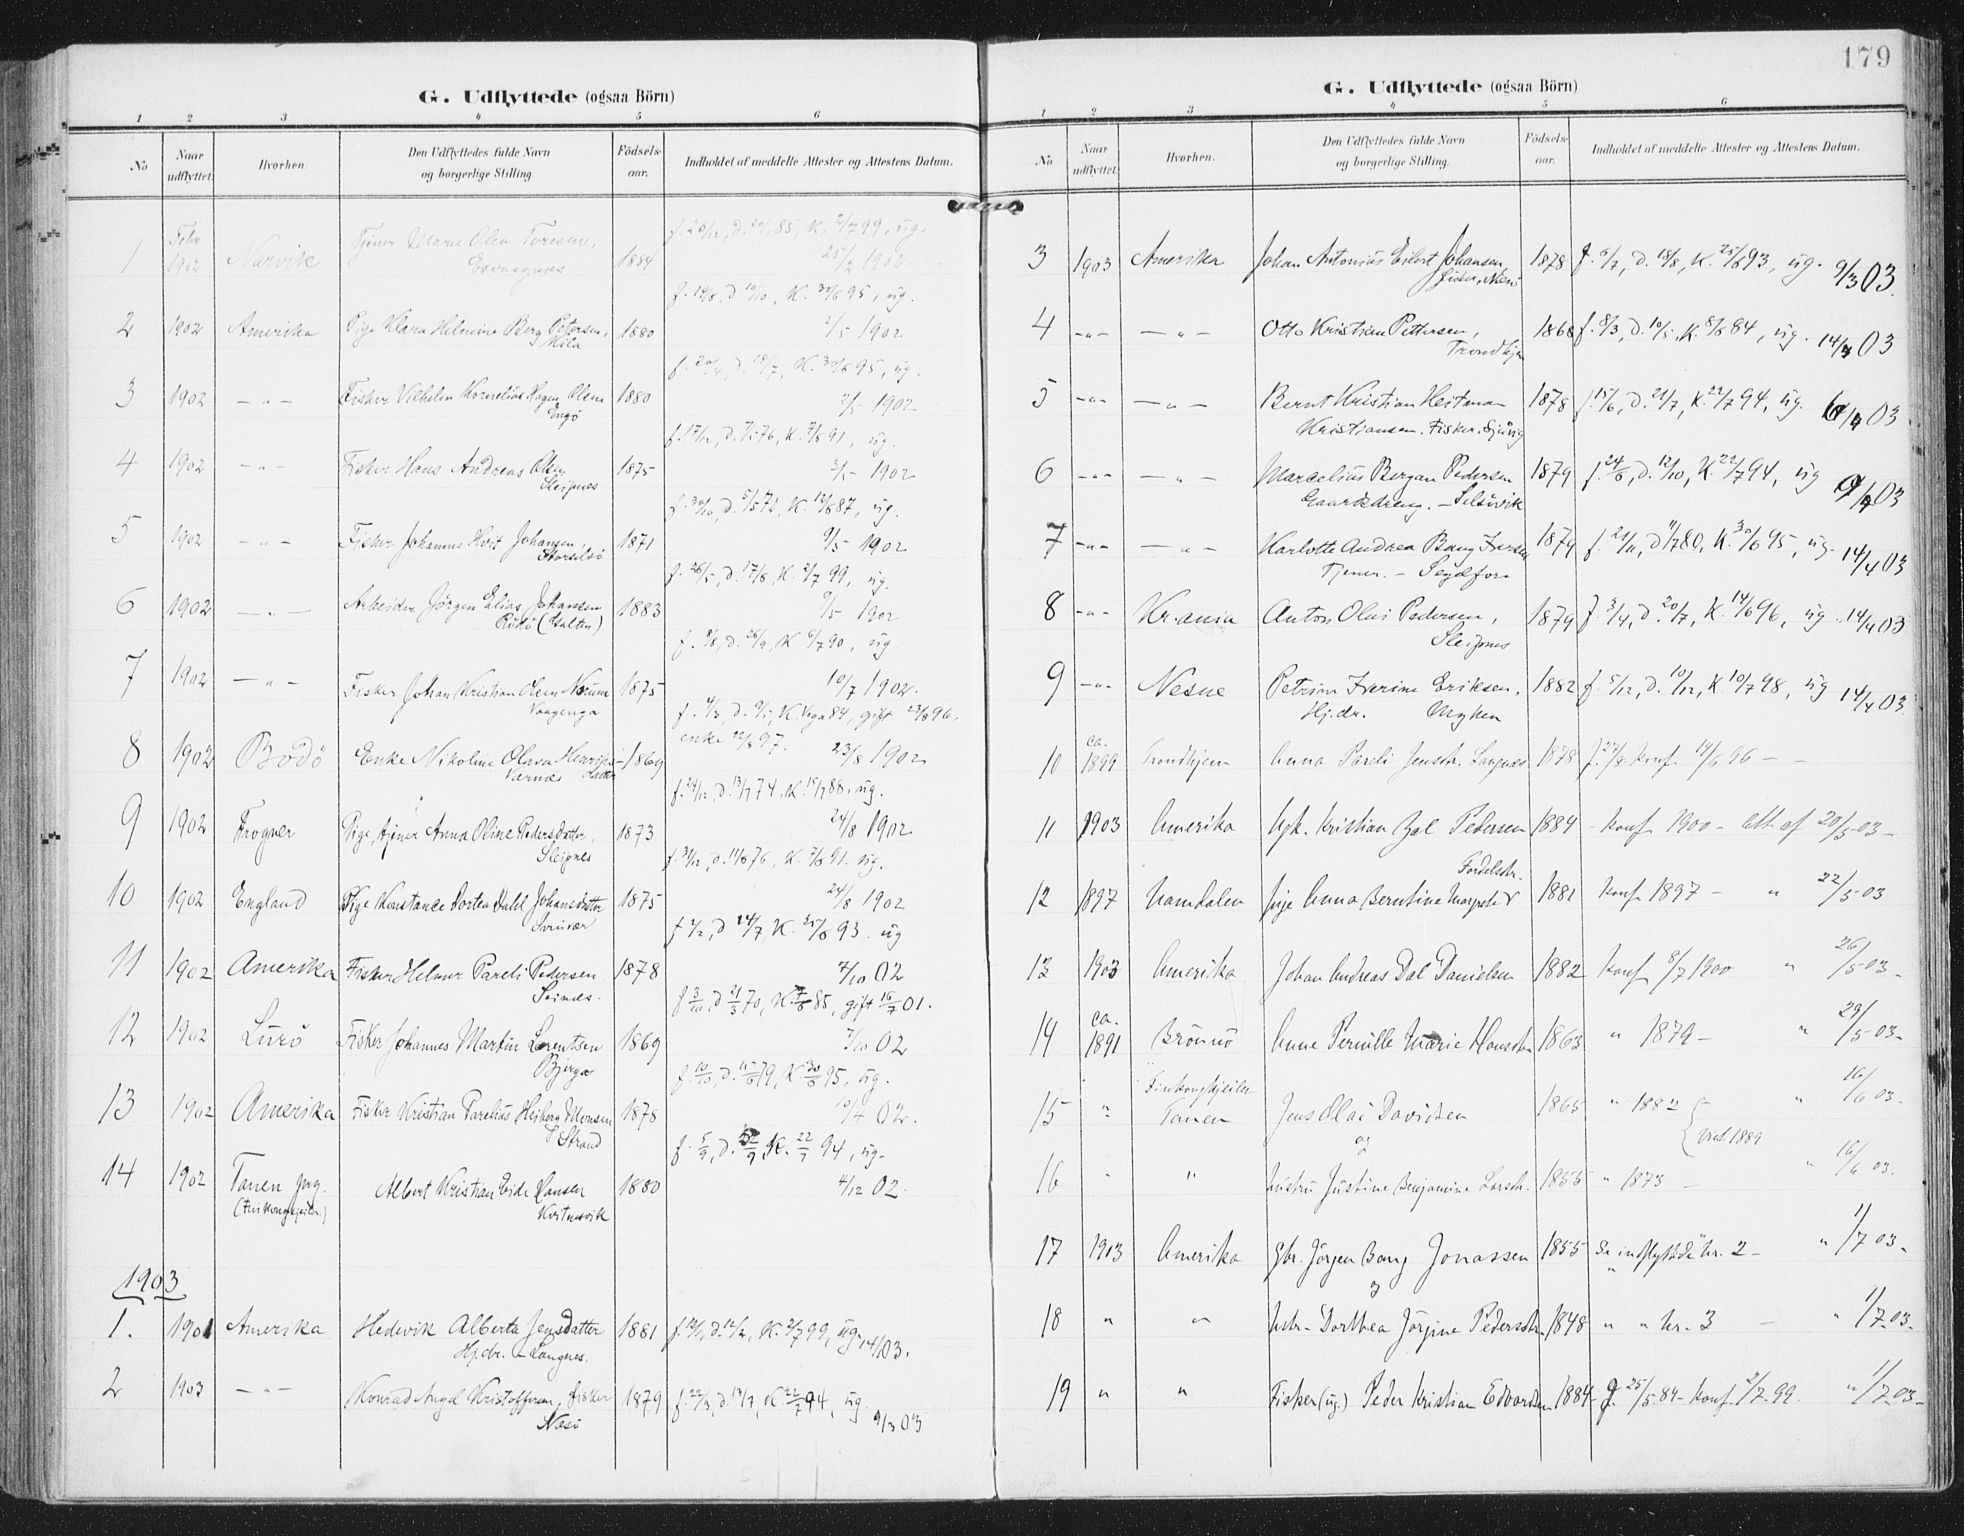 179
G. Udflyttede (ogsaa Börn)
1 2 3 4 5 6
No
Naar udflyttet.
Hvorhen.
Den Udflyttedes fulde Navn og borgerlige Stilling.
Födsels-aar.
Indholdet af meddelte Attester og Attestens Datum.
1 Febr 1902 Narvik Tjener Marie Olea Toresen, 1884 K. 2/7 99, ug.
25/2 1902
2 1902 Amerika Pige Klara Helmine Berg Petersen, 1880 f. 14/8, d. 10/10, K. 30/6 95, ug.
2/5 1902
3 1902 — " — Fisker Vilhelm Kornelius Hagen Olsen 1880 K. 30/6 95, ug.
Engö 2/5 1902
4 1902 — " — Fisker Hans Andreas Olsen 1875 f. 17/12, d. 7/5 76, K. 7/6 91, ug.
Sleipnes 3/5 1902
5 1902 — " — Fisker Johannes Hvit Johansen, 1871 f. 30/10, d. 5/5 72, K. 19/6 87, ug.
Storselsö 9/5 1902
6 1902 — " — Arbeider Jörgen Elias Johansen 1883 f. 26/5, d. 17/6, K. 2/7 99, ug.
Rödö 9/5 1902
7 1902 — " — Fisker Johan Kristian Olsen Norum 1875 f. 8/8, d. 26/9, K. 6/7 90, ug.
Vaagenga 10/7 1902.
8 1902 Bodö Enke Nikoline Olava Henriks- 1869 f. 4/3, d. 9/5, K. Vega 84, gift 23/8 96,
datter enke 12/8 97. 23/8 1902
9 1902 Frogner Pige, tjener Anna Oline Pedersdatter, 1873 f. 24/12, d. 13/4 74, K. 15/7 88, ug.
Sleipnes 24/8 1902
10 1902 England Pige Konstance Dortea Dahl Johansdatter 1875 f. 31/12, d. 11/6 76, K. 7/6 91. ug.
Svinvær 24/8 1902
11 1902 Amerika Fisker Helmer Pareli Pedersen, 1878 K. 25/6 93. ug
Seines. 7/10 02
12 1902 Lurö Fisker Johannes Martin Lorentsen 1869 f. 3/10, d. 21/3 70, K. 85, gift 16/7 01.
Bjerga 7/10 02
13 1902 Amerika Fisker Kristian Parelius Heiberg Monsen 1878 f. 10/10, d. 79, K. 30/6 95, ug.
Strand 02.
14 1902 Tanen prg. Albert Kristian Eide Hansen 1880 K. 22/7 94, ug.
Kvitnesvik 4/12 02.
1903
1. 1901 Amerika Hedevik Alberta Jensdatter 1881 K. 2/7 99, ug.
Hj.dr. – Langnes. 03.
2 1903 — " — Konrad Angel Kristoffersen, Fisker 1879 f. 22/3, d. 13/7, K. 22/7 94, ug.
Nesö 9/3 03
G. Udflyttede (ogsaa Börn)
1 2 3 4 5 6
No
Naar udflyttet.
Hvorhen.
Den Udflyttedes fulde Navn og borgerlige Stilling.
Födsels-aar.
Indholdet af meddelte Attester og Attestens Datum.
3 1903 Amerika Johan Antonius Eilert Johansen, 1878 f. 5/7, d. 18/8, K. 25/6 93, ug. 9/3 03.
Fisker, Nesö
4 — " — — " — Otto Kristian Pettersen, 1868 f. 8/3, d. 10/5, K. 8/6 84, ug. 14/3 03
Trondhjem
5 — " — — " — Bernt Kristian Heitman 1878 f. 15/6, d. 21/7, K. 22/7 94, ug. 03
Kristiansen. Fisker.
6 — " — — " — Marcelius Bergan Pedersen 1879 f. 24/8, d. 12/10, K. 22/7 94, ug 9/4 03
Gaardsdreng. – Selsövik
7 — " — — " — Karlotte Andrea Bang Iversen 1879 f. 21/11, d. 80, K. 30/6 95, ug. 14/4 03
Tjener. –
8 — " — Kr.ania Anton Olai Pedersen, 1879 f. 3/4, d. 20/7, K. 14/6 96, ug. 14/4 03
Sleipnes
9 — " — Nesne Petrine Iverine Eriksen, 1882 f. 5/12, d. 10/12, K. 10/7 98, ug 14/4 03.
Hj.dr. Myken
10 ca. 1899 Trondhjem Anna Pareli Jensdr. Langnes 1878 f. 27/8 konf. 14/6 96 – –
11 1903 Amerika Ugk. Kristian Zal Pedersen 1884 – konf 1900 – Att af 20/5-03 –
12 1897 Namdalen pige Anna Berntine Margrete Fordelsdr. 1881 konf 1897 – " 22/5-03
13 1903 Amerika Johan Andreas Dal Danielsen 1882 konf 8/7 1900 " 26/5-03 –
14 ca. 1891 Brönnö Anne Pernille Marie Hansdr 1863 " 1879 – " 29/5-03 –
15 " Finkongkjeilen Tanen Jens Olai Davidsen 1865 " 1882 – " 16/6 03 –
og viet 1889
16 " " hustru Justine Benjamine Larsdr. 1855 " 1873 – " 16/6 03.
17 1903 Amerika Gbr. Jörgen Bang Jonassen 1855 Se indflyttede nr. 2 – " 1/7 03 –
og
18 " " hstr – Dorthea Jörgine Pedersdtr. 1848 " " nr. 3 – " 1/7-03 –
19 " " Fisker (ug.) Peder Kristian Edvardsen 1884 – f 25/5 84 – konf 2/7-99. " 1/7-03 –